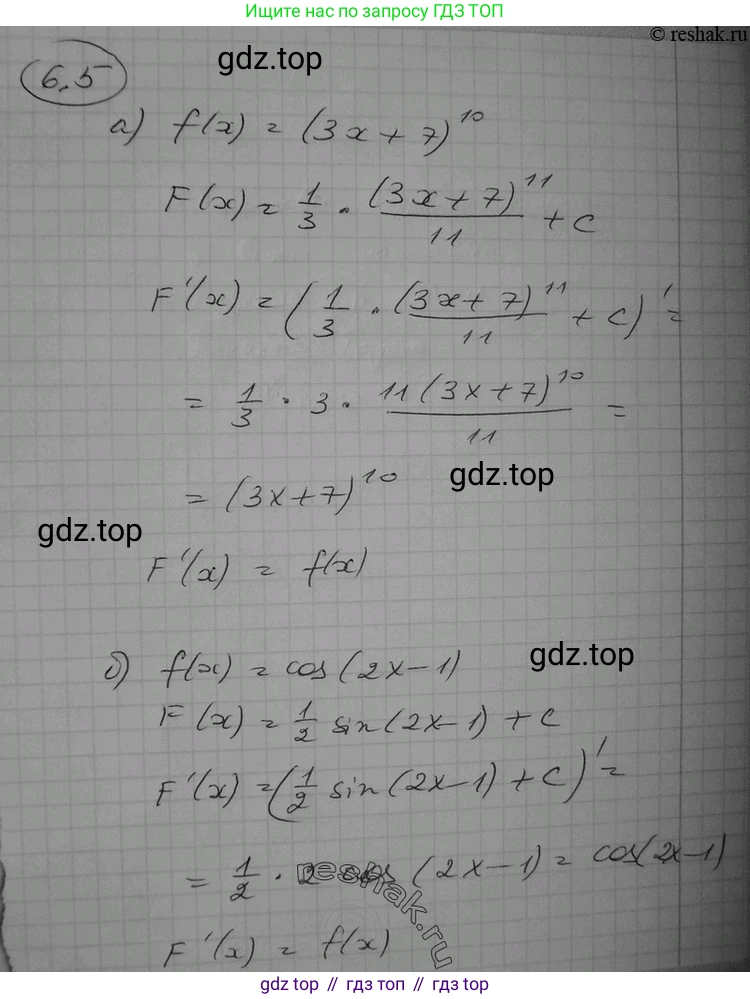 Ищите нас по запросу ГДЗ ТОП
© reshak.ru
6.5
gdz.top
а) f(x) = (3x + 7)^10
F(x) = 1/3 · (3x + 7)^11/11 + C
F'(x) = (1/3 · (3x + 7)^11/11 + C)' =
= 1/3 · 3 · 11(3x + 7)^10/11 =
gdz.top
= (3x + 7)^10
gdz.top
F'(x) = f(x)
б) f(x) = cos(2x - 1)
gdz.top
F(x) = 1/2 sin(2x - 1) + C
F'(x) = (1/2 sin(2x - 1) + C)' =
= 1/2 · 2 cos (2x - 1) = cos(2x - 1)
reshak.ru
F'(x) = f(x)
gdz.top // гдз топ // gdz.top